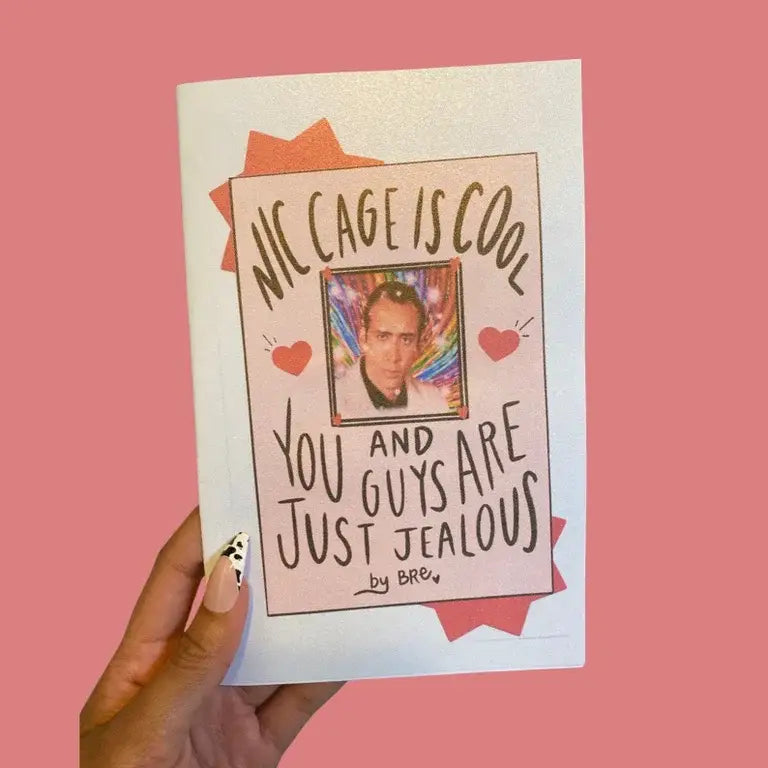 NIC CAGE IS COOL
AND
YOU GUYS ARE
JUST JEALOUS
by BRe